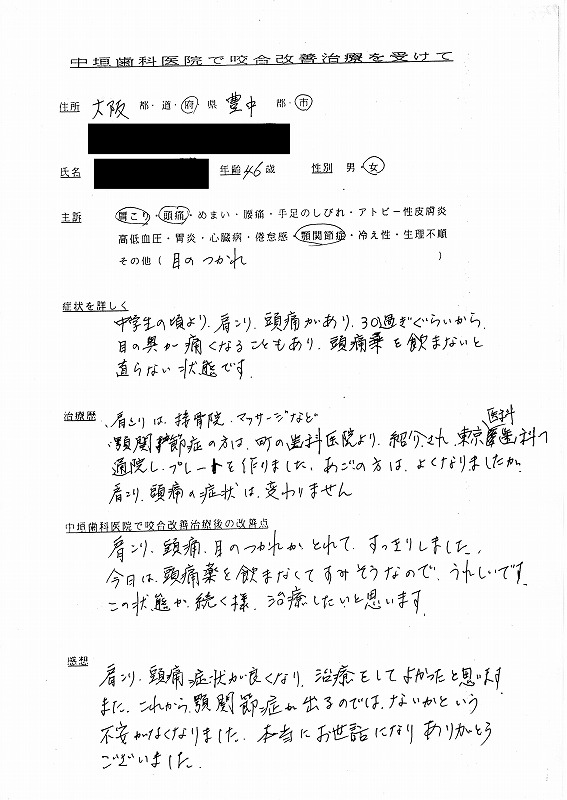 中垣歯科医院で咬合改善治療を受けて
住所 大阪 都・道・府・県 豊中 郡・市
氏名 年齢 46歳 性別 男・女
主訴 肩こり・頭痛・めまい・腰痛・手足のしびれ・アトピー性皮膚炎
高低血圧・胃炎・心臓病・倦怠感・顎関節症・冷え性・生理不順
その他(目のつかれ)
症状を詳しく
中学生の頃より、肩こり、頭痛があり、30過ぎぐらいから、
目の奥が痛くなることもあり、頭痛薬を飲まないと
直らない状態です。
治療歴
肩こりは、接骨院、マッサージなど
顎関節症の方は、町の歯科医院より、紹介され、東京医科歯科へ
通院し、プレートを作りました。あごの方は、よくなりましたが、
肩こり、頭痛の症状は、変わりません
中垣歯科医院で咬合改善治療後の改善点
肩こり、頭痛、目のつかれがとれて、すっきりしました。
今日は、頭痛薬を飲まなくてすみそうなので、うれしいです。
この状態が続く様、治療したいと思います。
感想
肩こり、頭痛症状が良くなり、治療をしてよかったと思います。
また、これから、顎関節症が出るのでは、ないかという
不安がなくなりました。本当にお世話になりありがとう
ございました。